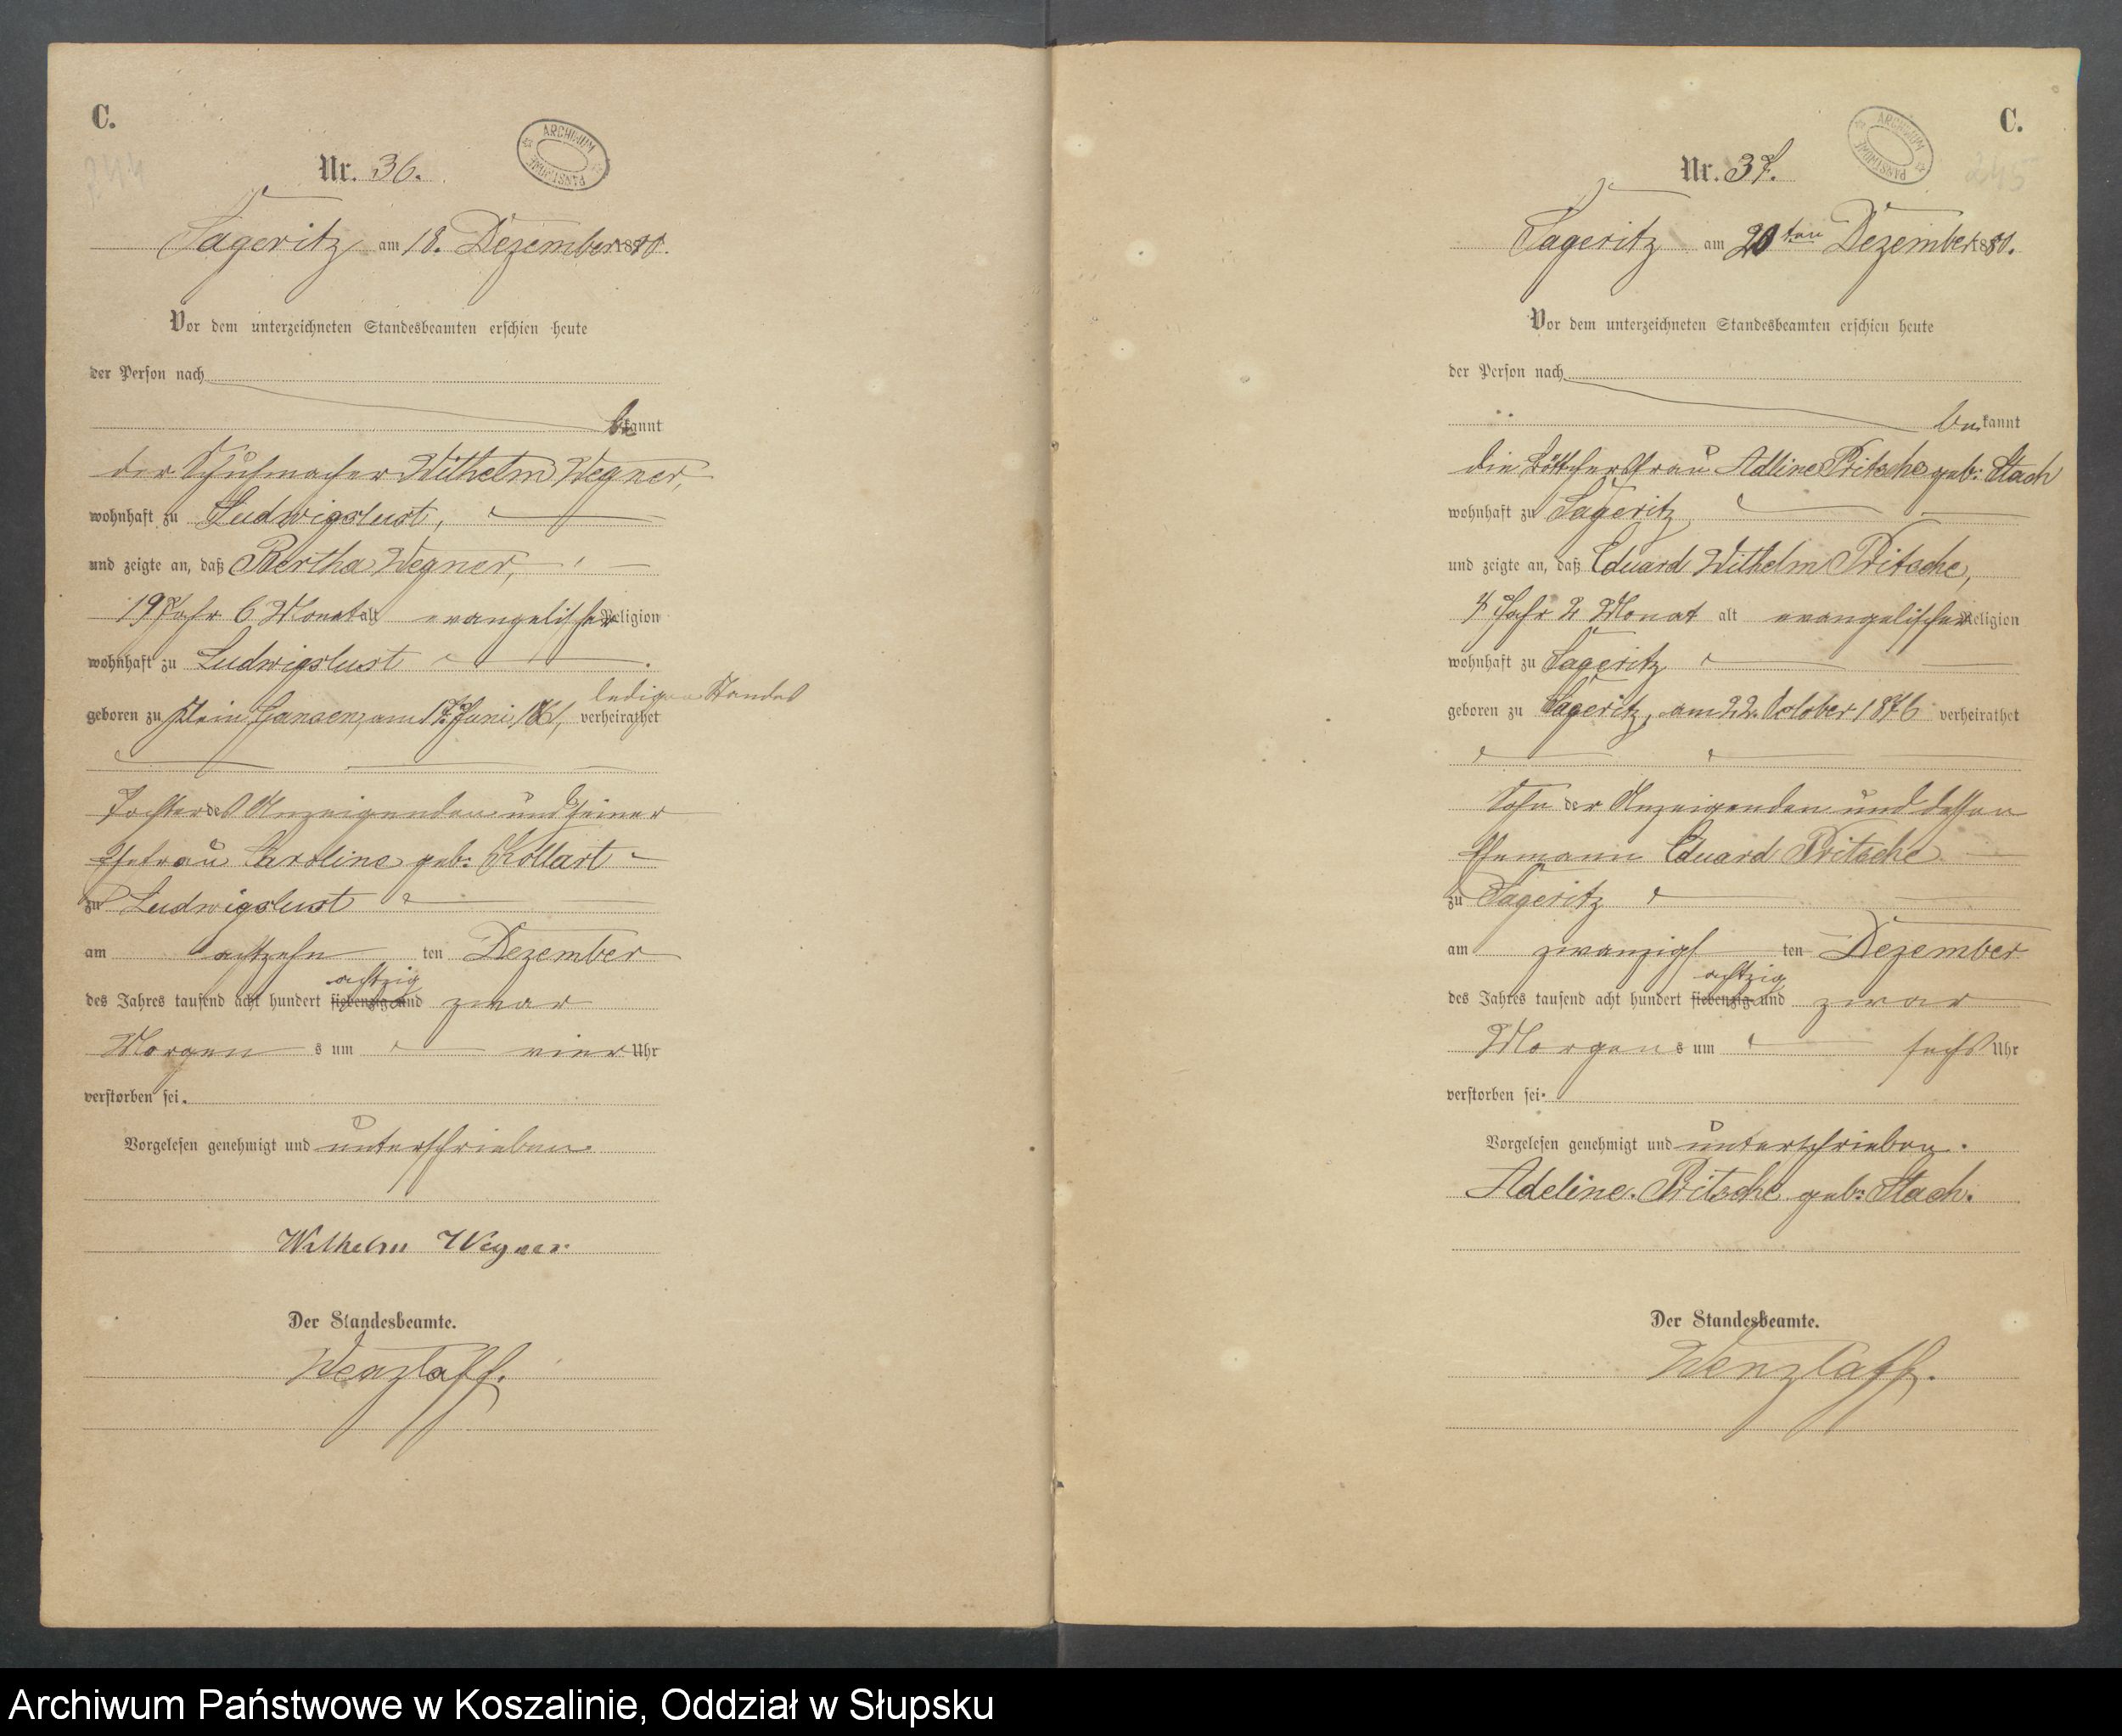 C.
244
Nr. 36.
ARCHIWUM PAŃSTWOWE
Sageritz am 18. Dezember 1880.
Vor dem unterzeichneten Standesbeamten erschien heute
der Person nach
bekannt
der Schuhmacher Wilhelm Wegner,
wohnhaft zu Ludwigslust,
und zeigte an, daß Bertha Wegner,
19 Jahr 6 Monat alt evangelischer Religion
wohnhaft zu Ludwigslust
ledigen Standes
geboren zu Klein Gansen, am 17. Juni 1861, verheirathet
Tochter des Anzeigenden und seiner
Ehefrau Caroline geb: Kollart
zu Ludwigslust
am achtzehn ten Dezember
achtzig
des Jahres tausend acht hundert siebenzig und zwar
Morgen s um vier Uhr
verstorben sei.
Vorgelesen genehmigt und unterschrieben.
Wilhelm Wegner
Der Standesbeamte.
Wenzlaff.
C.
245
Nr. 37.
ARCHIWUM PAŃSTWOWE
Sageritz am 20ten Dezember 1880.
Vor dem unterzeichneten Standesbeamten erschien heute
der Person nach
bekannt
die Böttcherfrau Adline Pritsche geb: Stach
wohnhaft zu Sageritz
und zeigte an, daß Eduard Wilhelm Pritsche,
4 Jahr 2 Monat alt evangelischer Religion
wohnhaft zu Sageritz
geboren zu Sageritz, am 22. October 1876 verheirathet
Sohn der Anzeigenden und dessen
Ehemann Eduard Pritsche
zu Sageritz
am zwanzigs ten Dezember
achtzig
des Jahres tausend acht hundert siebenzig und zwar
Morgens um sechs Uhr
verstorben sei.
Vorgelesen genehmigt und unterschrieben.
Adeline. Pritsche geb: Stach.
Der Standesbeamte.
Wenzlaff.
Archiwum Państwowe w Koszalinie, Oddział w Słupsku